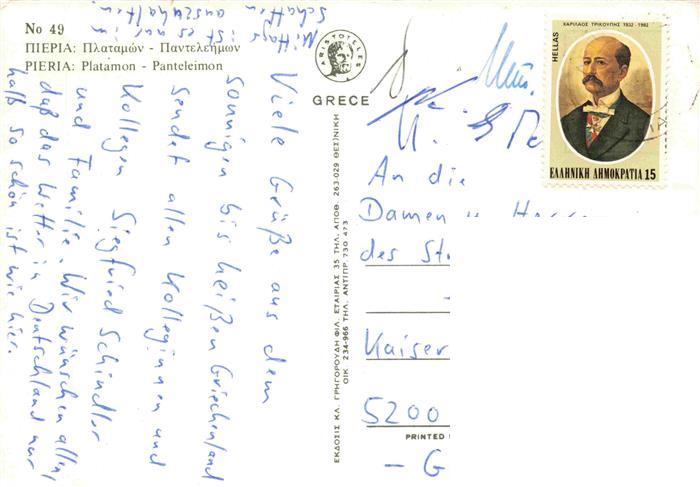 No 49
ΠΙΕΡΙΑ: Πλαταμών - Παντελεήμων
PIERIA: Platamon - Panteleimon
Viele Grüße aus dem
sonnigen bis heißen Griechenland
sendet allen Kolleginnen und
Kollegen Siegfried Schindler
und Familie. Wir wünschen allen,
daß das Wetter in Deutschland nur
halb so schön ist wie hier.
Mittags ist es nur im
Schatten auszuhalten.
ARISTOTELES
GRECE
ΕΚΔΟΣΙΣ ΚΛ. ΓΡΗΓΟΡΟΥΔΗ ΦΙΛ. ΕΤΑΙΡΙΑΣ 35 ΤΗΛ. ΑΠΟΘ. 263.029 ΘΕΣ)ΝΙΚΗ
ΟΙΚ 234-966 ΤΗΛ. ΑΝΤΠΡ. 730 473
ΧΑΡΙΛΑΟΣ ΤΡΙΚΟΥΠΗΣ 1832-1982
HELLAS
ΕΛΛΗΝΙΚΗ ΔΗΜΟΚΡΑΤΙΑ 15
An die
Damen u.
des St
Kaiser
5200
PRINTED
- G